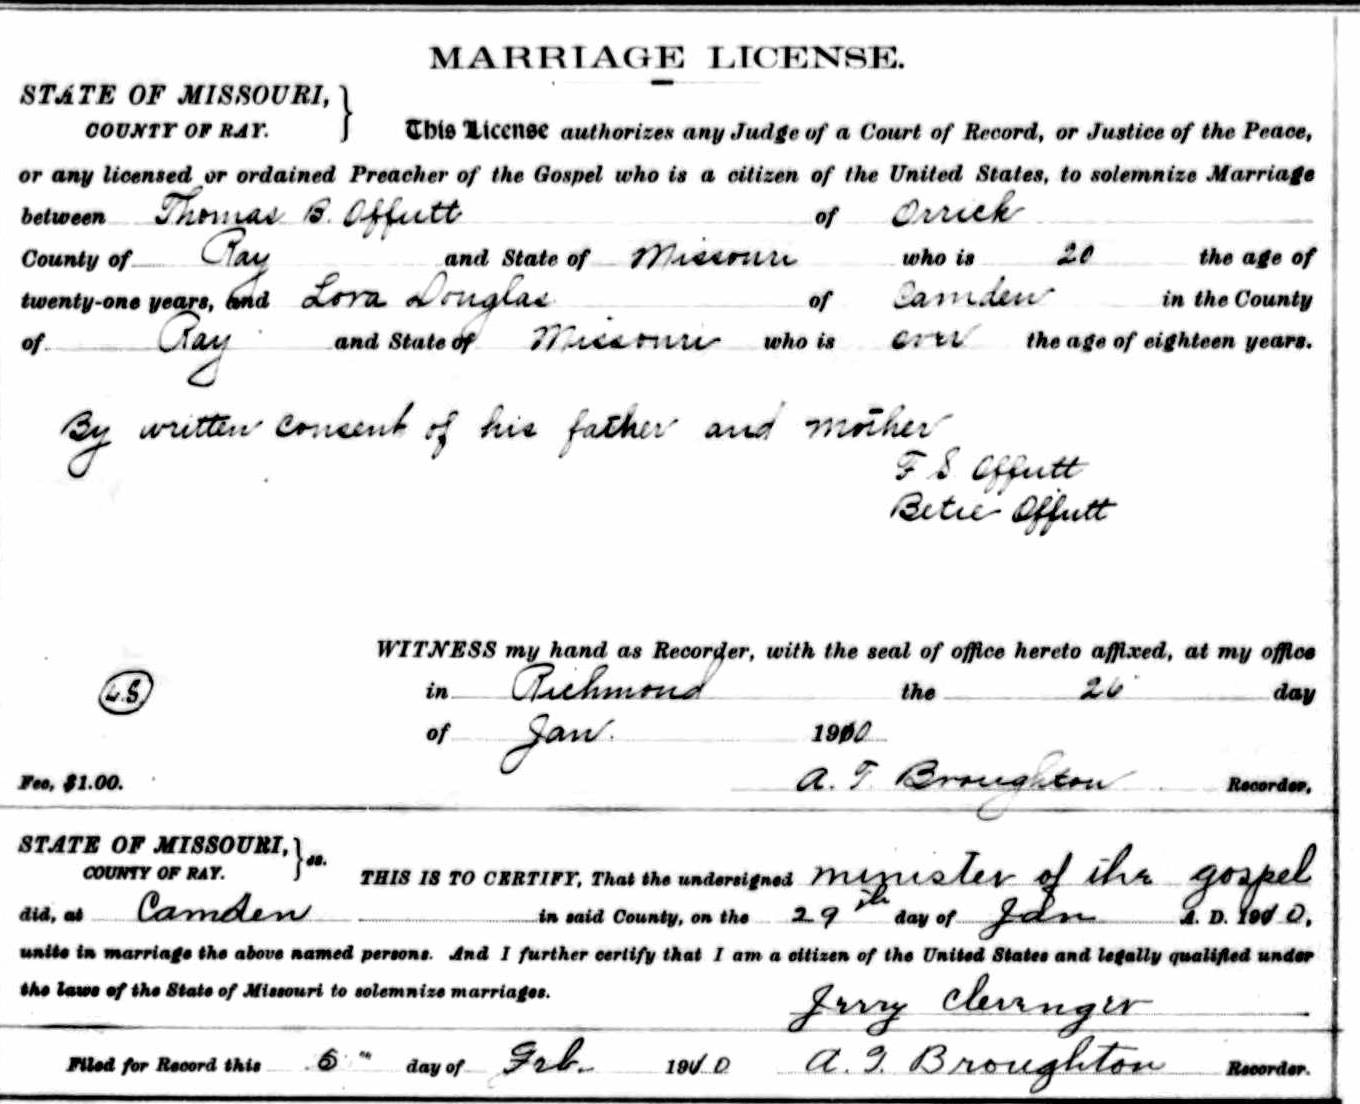 MARRIAGE LICENSE.
STATE OF MISSOURI,
COUNTY OF RAY.
This License authorizes any Judge of a Court of Record, or Justice of the Peace,
or any licensed or ordained Preacher of the Gospel who is a citizen of the United States, to solemnize Marriage
between Thomas B. Offutt of Orrick
County of Ray and State of Missouri who is 20 the age of
twenty-one years, and Lora Douglas of Camden in the County
of Ray and State of Missouri who is over the age of eighteen years.
By written consent of his father and mother
F S Offutt
Betie Offutt
WITNESS my hand as Recorder, with the seal of office hereto affixed, at my office
in Richmond the 26 day
L.S.
of Jan. 1910
Fee, $1.00.
A. T. Broughton Recorder.
STATE OF MISSOURI,
COUNTY OF RAY. ss.
THIS IS TO CERTIFY, That the undersigned minister of the gospel
did, at Camden in said County, on the 29th day of Jan A. D. 1910,
unite in marriage the above named persons. And I further certify that I am a citizen of the United States and legally qualified under
the laws of the State of Missouri to solemnize marriages.
Jerry Clevenger
Filed for Record this 5th day of Feb. 1910 A. T. Broughton Recorder.